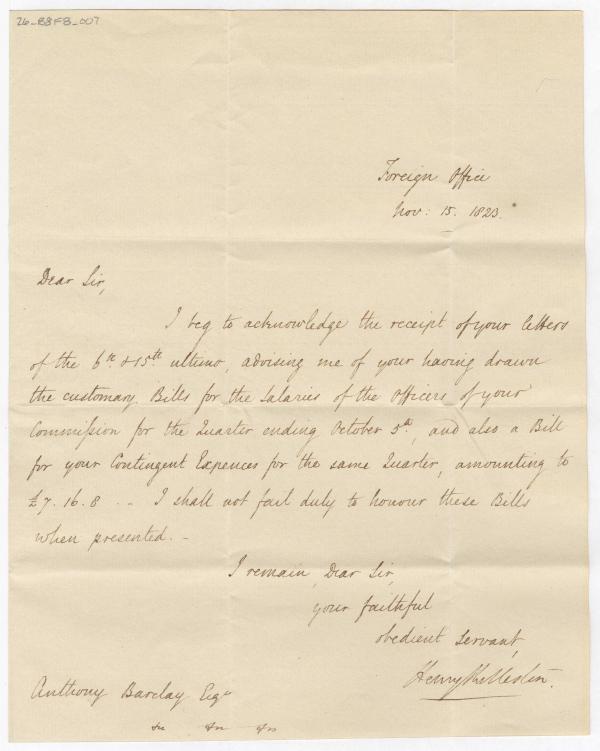 26-BBFB-007
Foreign Office
Nov: 15. 1823.
Dear Sir,
I beg to acknowledge the receipt of your letters
of the 6th. & 15th. ultimo, advising me of your having drawn
the customary Bills for the Salaries of the Officers of your
Commission for the Quarter ending October 5th, and also a Bill
for your Contingent Expences for the same Quarter, amounting to
£7. 16. 8 .. - I shall not fail duly to honour these Bills
when presented. -
I remain, Dear Sir,
your faithful
obedient Servant,
Henry Rolleston.
Anthony Barclay Esqr
&c &c &c